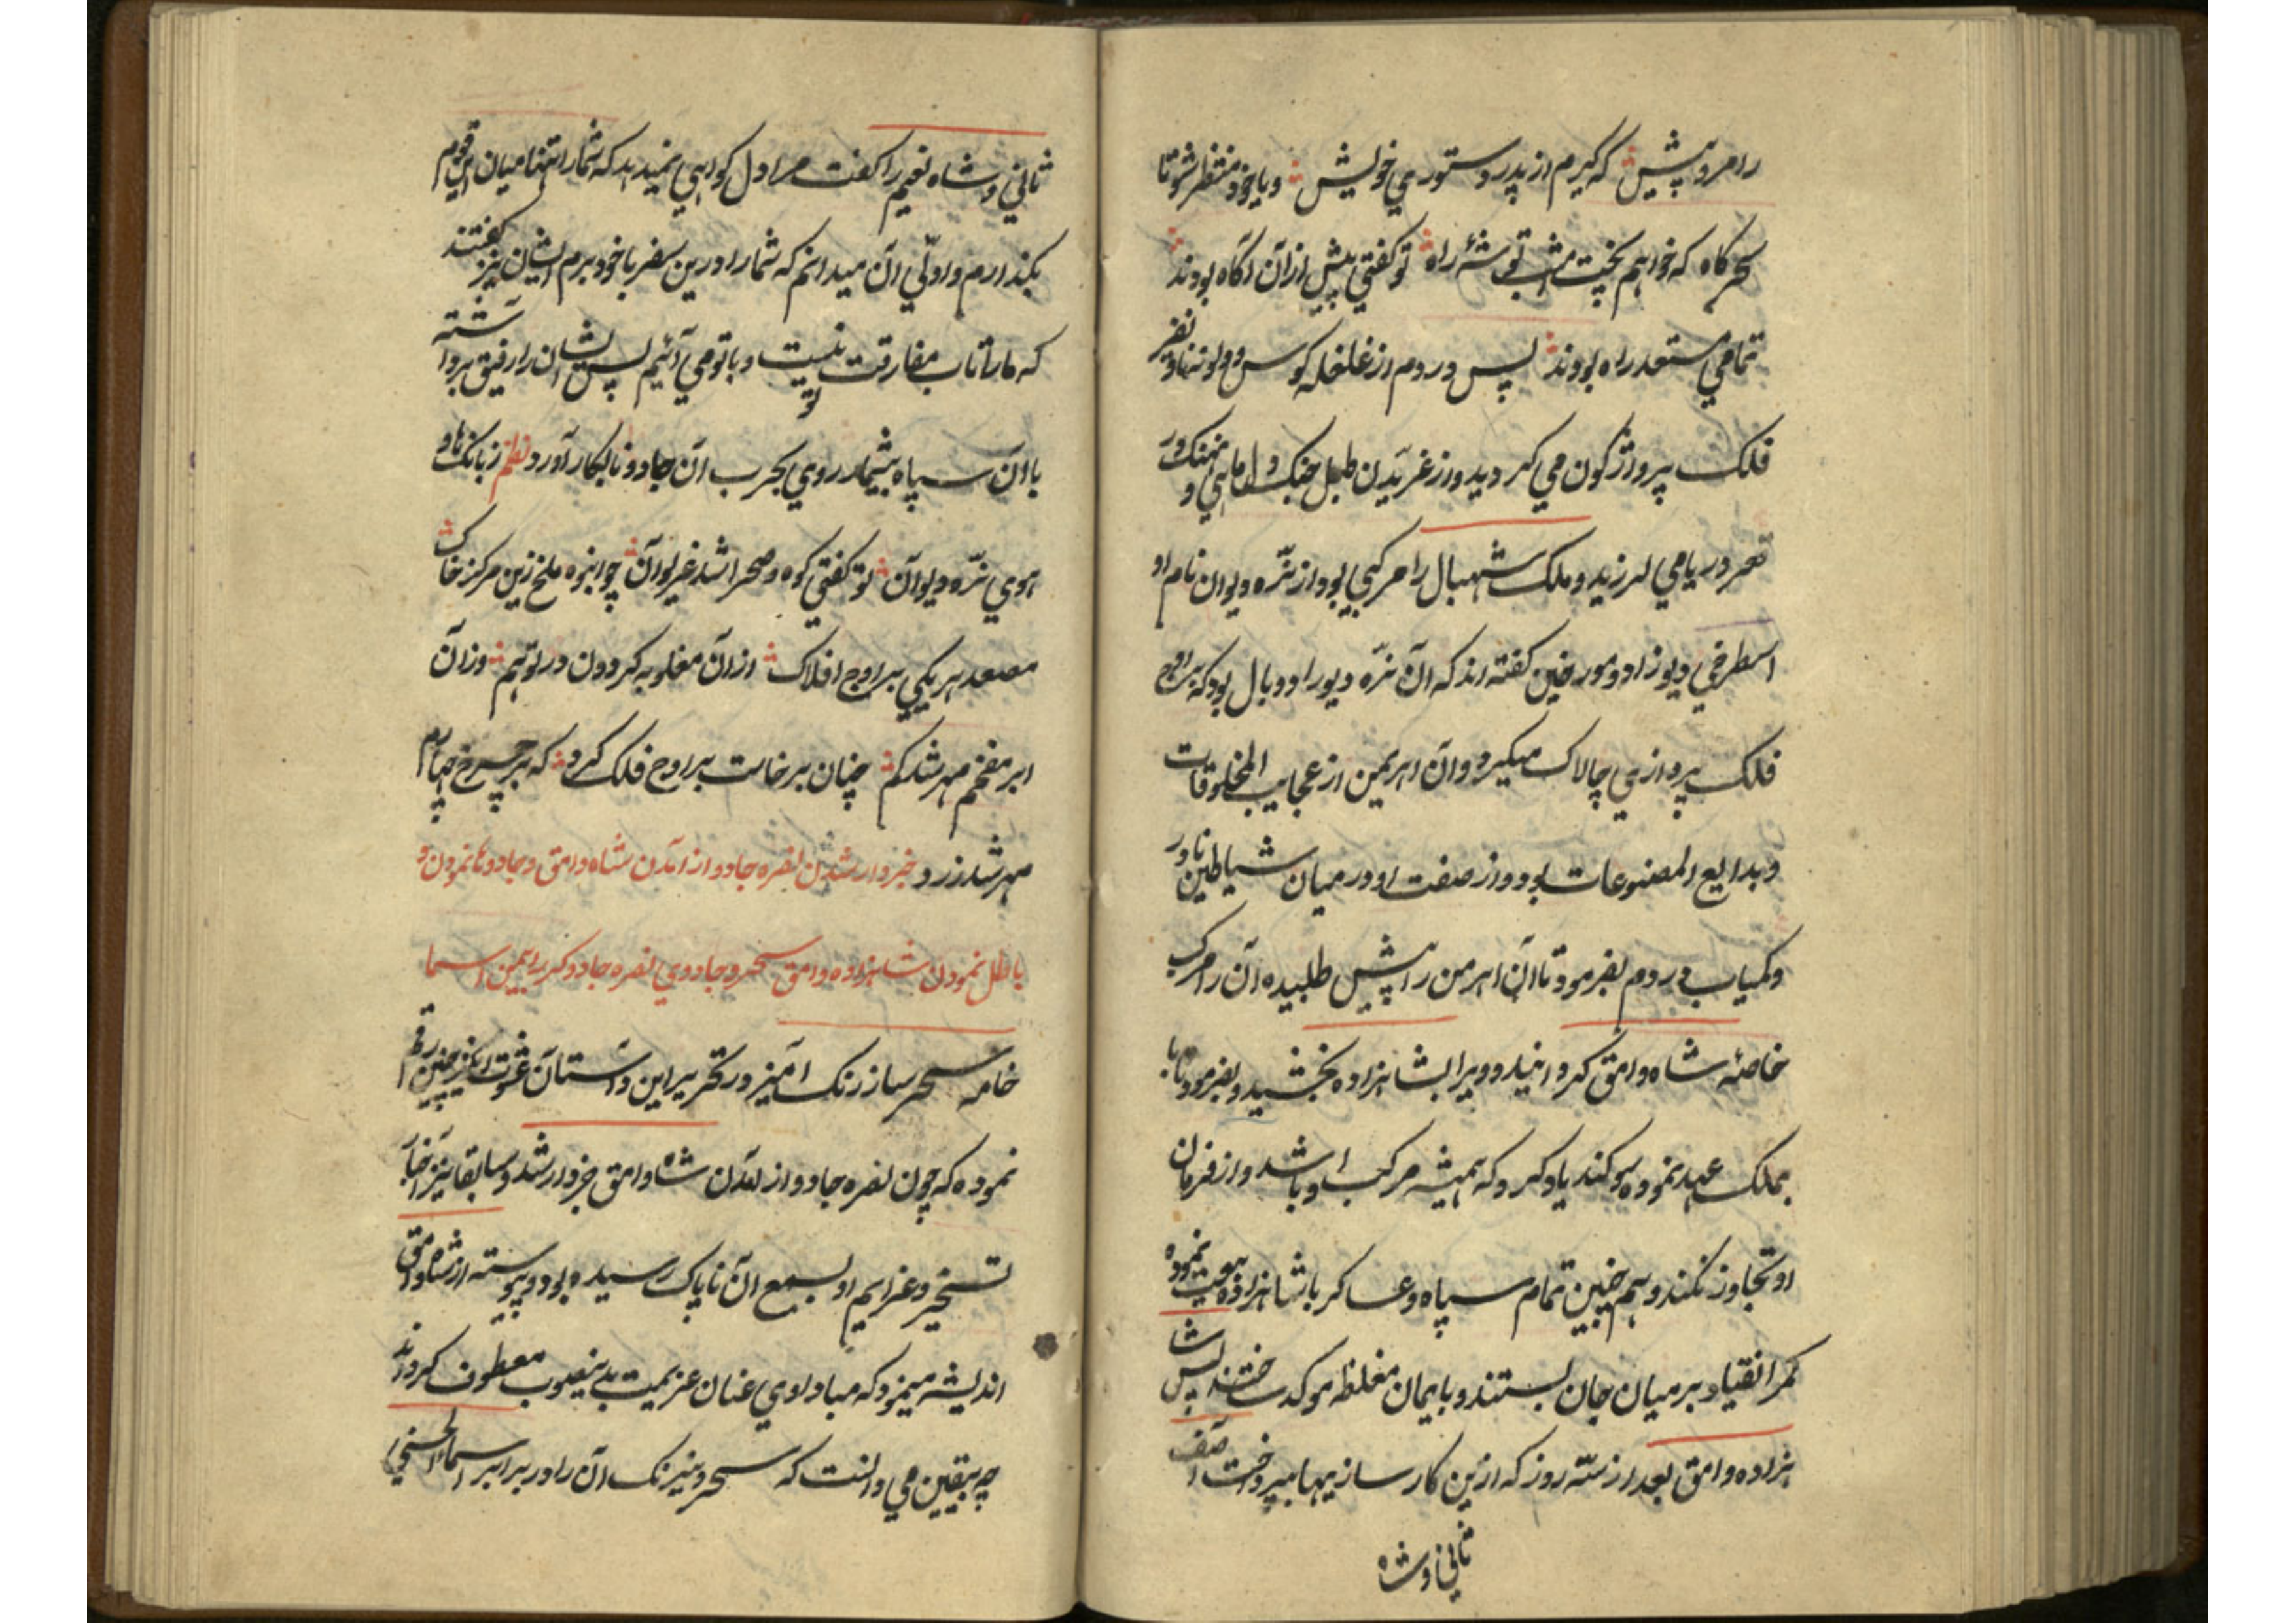 را مرو پیش که گیرم از پدر دستوری خویش و یا خود منتظر شو تا
سحرگاه که خواهم پخت مشب توشهٔ راه تو گفتی پیش ازان آگاه بودند
تمامی مستعد راه بودند پس در دم از غلغله کوس و نفیر
فلک پیروزگون می گردید و از غریدن طبل جنگ ماهی و نهنک در
قعر دریا می لرزید و ملک شهبال را مرکبی بود از نره دیوان نام او
اسطرخی دیوزاد و مورخین گفته اند که آن نره دیو را دو بال بود که بر اوج
فلک پروازی چالاک میکرد و آن اهریمن از عجایب المخلوقات
و بدایع المصنوعات بود و از صفت او در میان شیاطین نادر
و کمیاب در دم بفرمود تا آن اهرمن را پیش طلبیده آن را مرکب
خاصهٔ شاه وامق گردانید و ویرا بشاهزاده بخشید و بفرمود تا با
بملک عهد نموده سوکند یاد کرد که همیشه مرکب او باشد و از فرمان
او تجاوز نکند و همچنین تمام سپاه و عساکر با شاهزاده بیعت نموده
کمر انقیاد بر میان جان بستند و بایمان مغلظه موکد ساختند پس شا
هزاده وامق بعد از سه روز که ازین کارسازیها بپرداخت آصف
ثانی و شاه
ثانی و شاه نعیم را کفت مرا دل کواهی نمیدهد که شمارا تنها میان این قوم
بکذارم و اولی آن میدانم که شمارا درین سفر با خود برم ایشان نیز کفتند
که مارا تاب مفارقت تو نیست و با تو می آئیم پس ایشان را رفیق برداشته
با آن سپاه بیشمار روی بحرب آن جادو نابکار آورد نظم ز بانک های و
هوی نره دیوان تو گفتی کوه و صحرا شد غریوان چو انبوه ملخ زین مرکز خاک
مصعد هریکی بر اوج افلاک ازان مغلوبه گردون در توهم وزان
ابر مفخم مهر شد کم چنان برخاست بر اوج فلک گرد که بر چرخ چهارم
مهر شد زرد خبردار شدن نضره جادو از آمدن شاه وامق و جادوها نمودن و
باطل نمودن شاهزاده وامق سحر و جادوی نضره جادوگر را بیمن اسما
خامه سحرساز رنک آمیز در تحریر این داستان عشرت انگیز چنین رقم
نموده که چون نضره جادو از آمدن شاه وامق خبردار شد و سابقا نیز اخبار
تسخیر و عزایم او بسمع آن ناپاک رسیده بود و پیوسته از شاه وامق
اندیشه مینمود که مبادا وی عنان عزیمت بدینصوب معطوف گرداند
چه بیقین می دانست که سحر و نیرنک آن را در برابر اسماء الحسنی